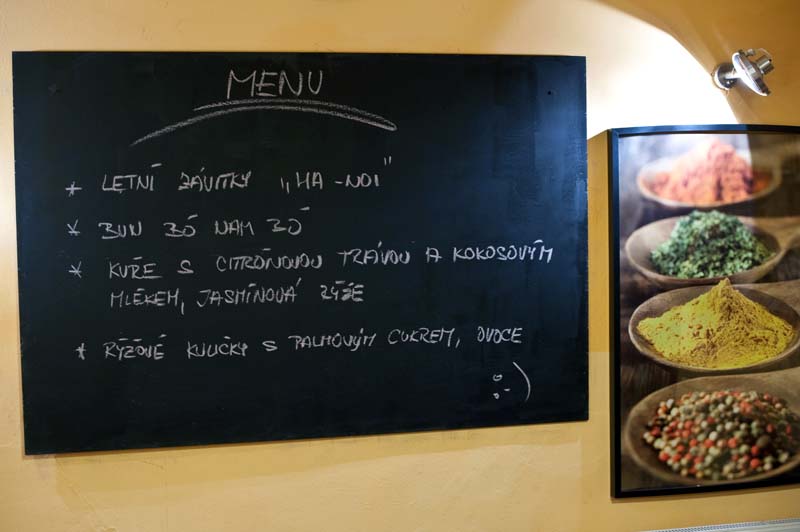 MENU
* LETNÍ ZÁVITKY „HA-NOI"
* BUN BÓ NAM BÓ
* KUŘE S CITRÓNOVOU TRÁVOU A KOKOSOVÝM
MLÉKEM, JASMÍNOVÁ RÝŽE
* RÝŽOVÉ KULIČKY S PALMOVÝM CUKREM, OVOCE
:-)